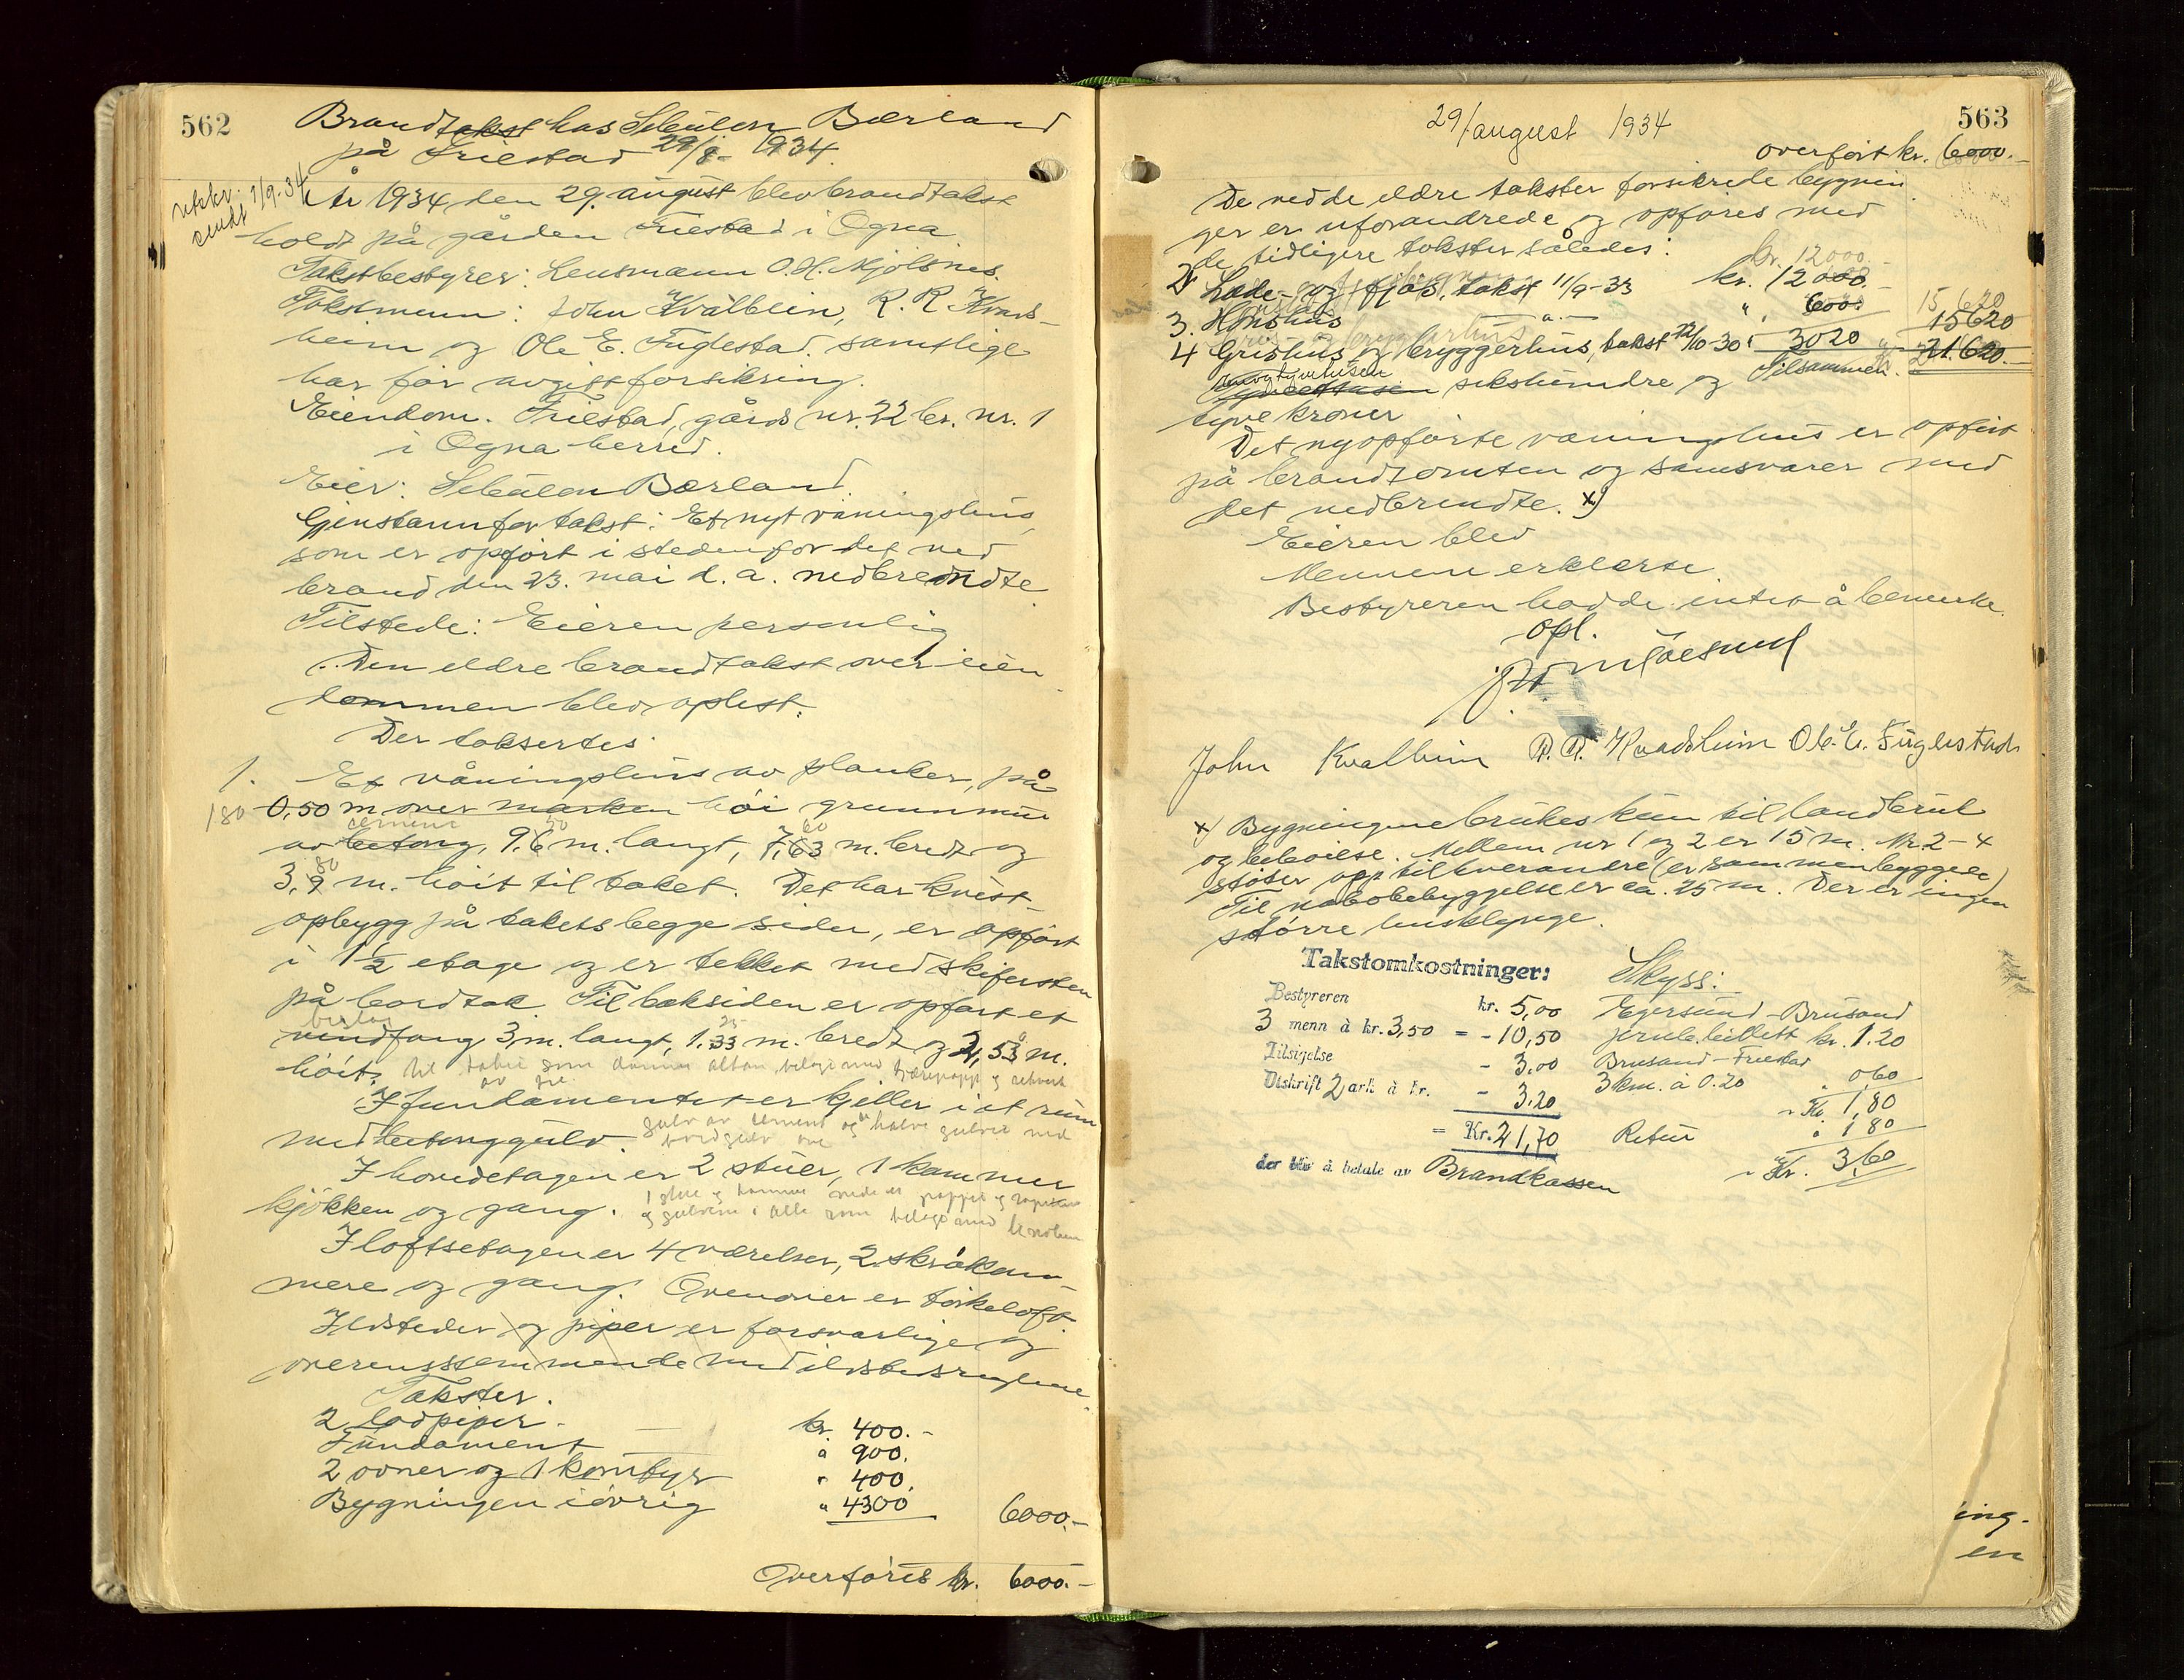 562
Brandtakst hos Scheulon Bærland
på Friestad 29/8- 1934.
sendt 1/9-34
År 1934 den 29. august blev brandtakst
holdt på gården Friestad i Ogna.
Takstbestyrer: Lensmann O. H. Mjølsnes.
Takstmenn: John Kvalbein, R. R. Kvads-
heim og Ole E. Fuglestad. samtlige
har før avgitt forsikring.
Eiendom. Friestad, gårds nr. 22 br. nr. 1
i Ogna herred.
Eier: Bærland.
Gjenstann for takst: Et nyt våningshus,
som er opført i stedenfor det ved
brand den 23. mai d. a. nedbrendte
Tilstede: Eieren personlig
Den eldre brandtakst over eien
dommen blev oplest.
Der taksertes
1. Et våningshus av planker, på
180 0,50 m over marken høi grunnmur
cement
av betong, 9,6 m. langt, 7,63 m. bredt og
3,9 m. høit til taket. Det har kvist-
opbygg på takets begge sider, er opført
i 1 1/2 etage og er tekket med skifersten
på bordtak. Til baksiden er opført et
bislag
vindfang 3 m. langt, 1.33 m. bredt og 2,53 m.
høit, til taket som danner altan, belagt med tjærepapp og rekkverk
av tre
I fundamentet er kjeller i et rum
med betonggulv. gulv av cement og halve gulvet med
bordgulv
I hovedetagen er 2 stuer, 1 kammer
kjøkken og gang. 1 stue og kammer nede er pappet og tapetsert
og gulvene i alle rom belagt med linoleum
I loftsetagen er 4 værelser, 2 skråkam-
mere og gang. Ovenover er tørkeloft.
Ildsteder og piper er forsvarlige og
overensstemmende med ildstedsreglene.
Takster.
2 lodpiper - kr. 400.-
Fundament " 900.
2 ovner og 1 komfyr " 400.
Bygningen iøvrig " 4300 6000.-
Overføres kr. 6000.-
29/ august 1934
563
overført kr. 6000.-
De ved de eldre takster forsikrede bygnin
ger er uforandrede og opføres med
de tidligere takster således:
kr. 12000.-
2. Lade- og fjøs, takst 11/9-33 kr. 12000.-
3. Hønshus -"- " 600. 15620
4 Grishus og bryggerhus, takst 22/10-30 " 3020 15620
Tilsammen kr. 21.620.-
enogtyvetusen
sekshundre og
tyve kroner
Det nyopførte våningshus er opført
på brandtomten og samsvarer med
det nedbrendte. x)
Eieren blev
Mennene erklærte
Bestyreren hadde intet å bemerke.
Opl.
John Kvalbein R. R. Kvadsheim Ole E. Fuglestad
x) Bygningene brukes kun til landbruk
og beboelse. Mellem nr 1 og 2 er 15 m. Nr. 2-4
støter opp til hverandre (er sammenbygget)
Til nabobebyggelse er ca. 25 m. Der er ingen
større husklynge.
Takstomkostninger:
Bestyreren kr. 5,00
3 menn à kr. 3,50 = - 10,50
Tilsigelse - 3,00
Utskrift 2 ark à kr. - 3.20
= Kr. 21,70
der blir å betale av Brandkassen
Skyss:
Egersund - Brusand
jernb. billett kr. 1.20
Brusand - Friestad
3 km. à 0.20 " 0,60
Kr. 1,80
Retur " 1 80
Kr. 3,60
ing.
en